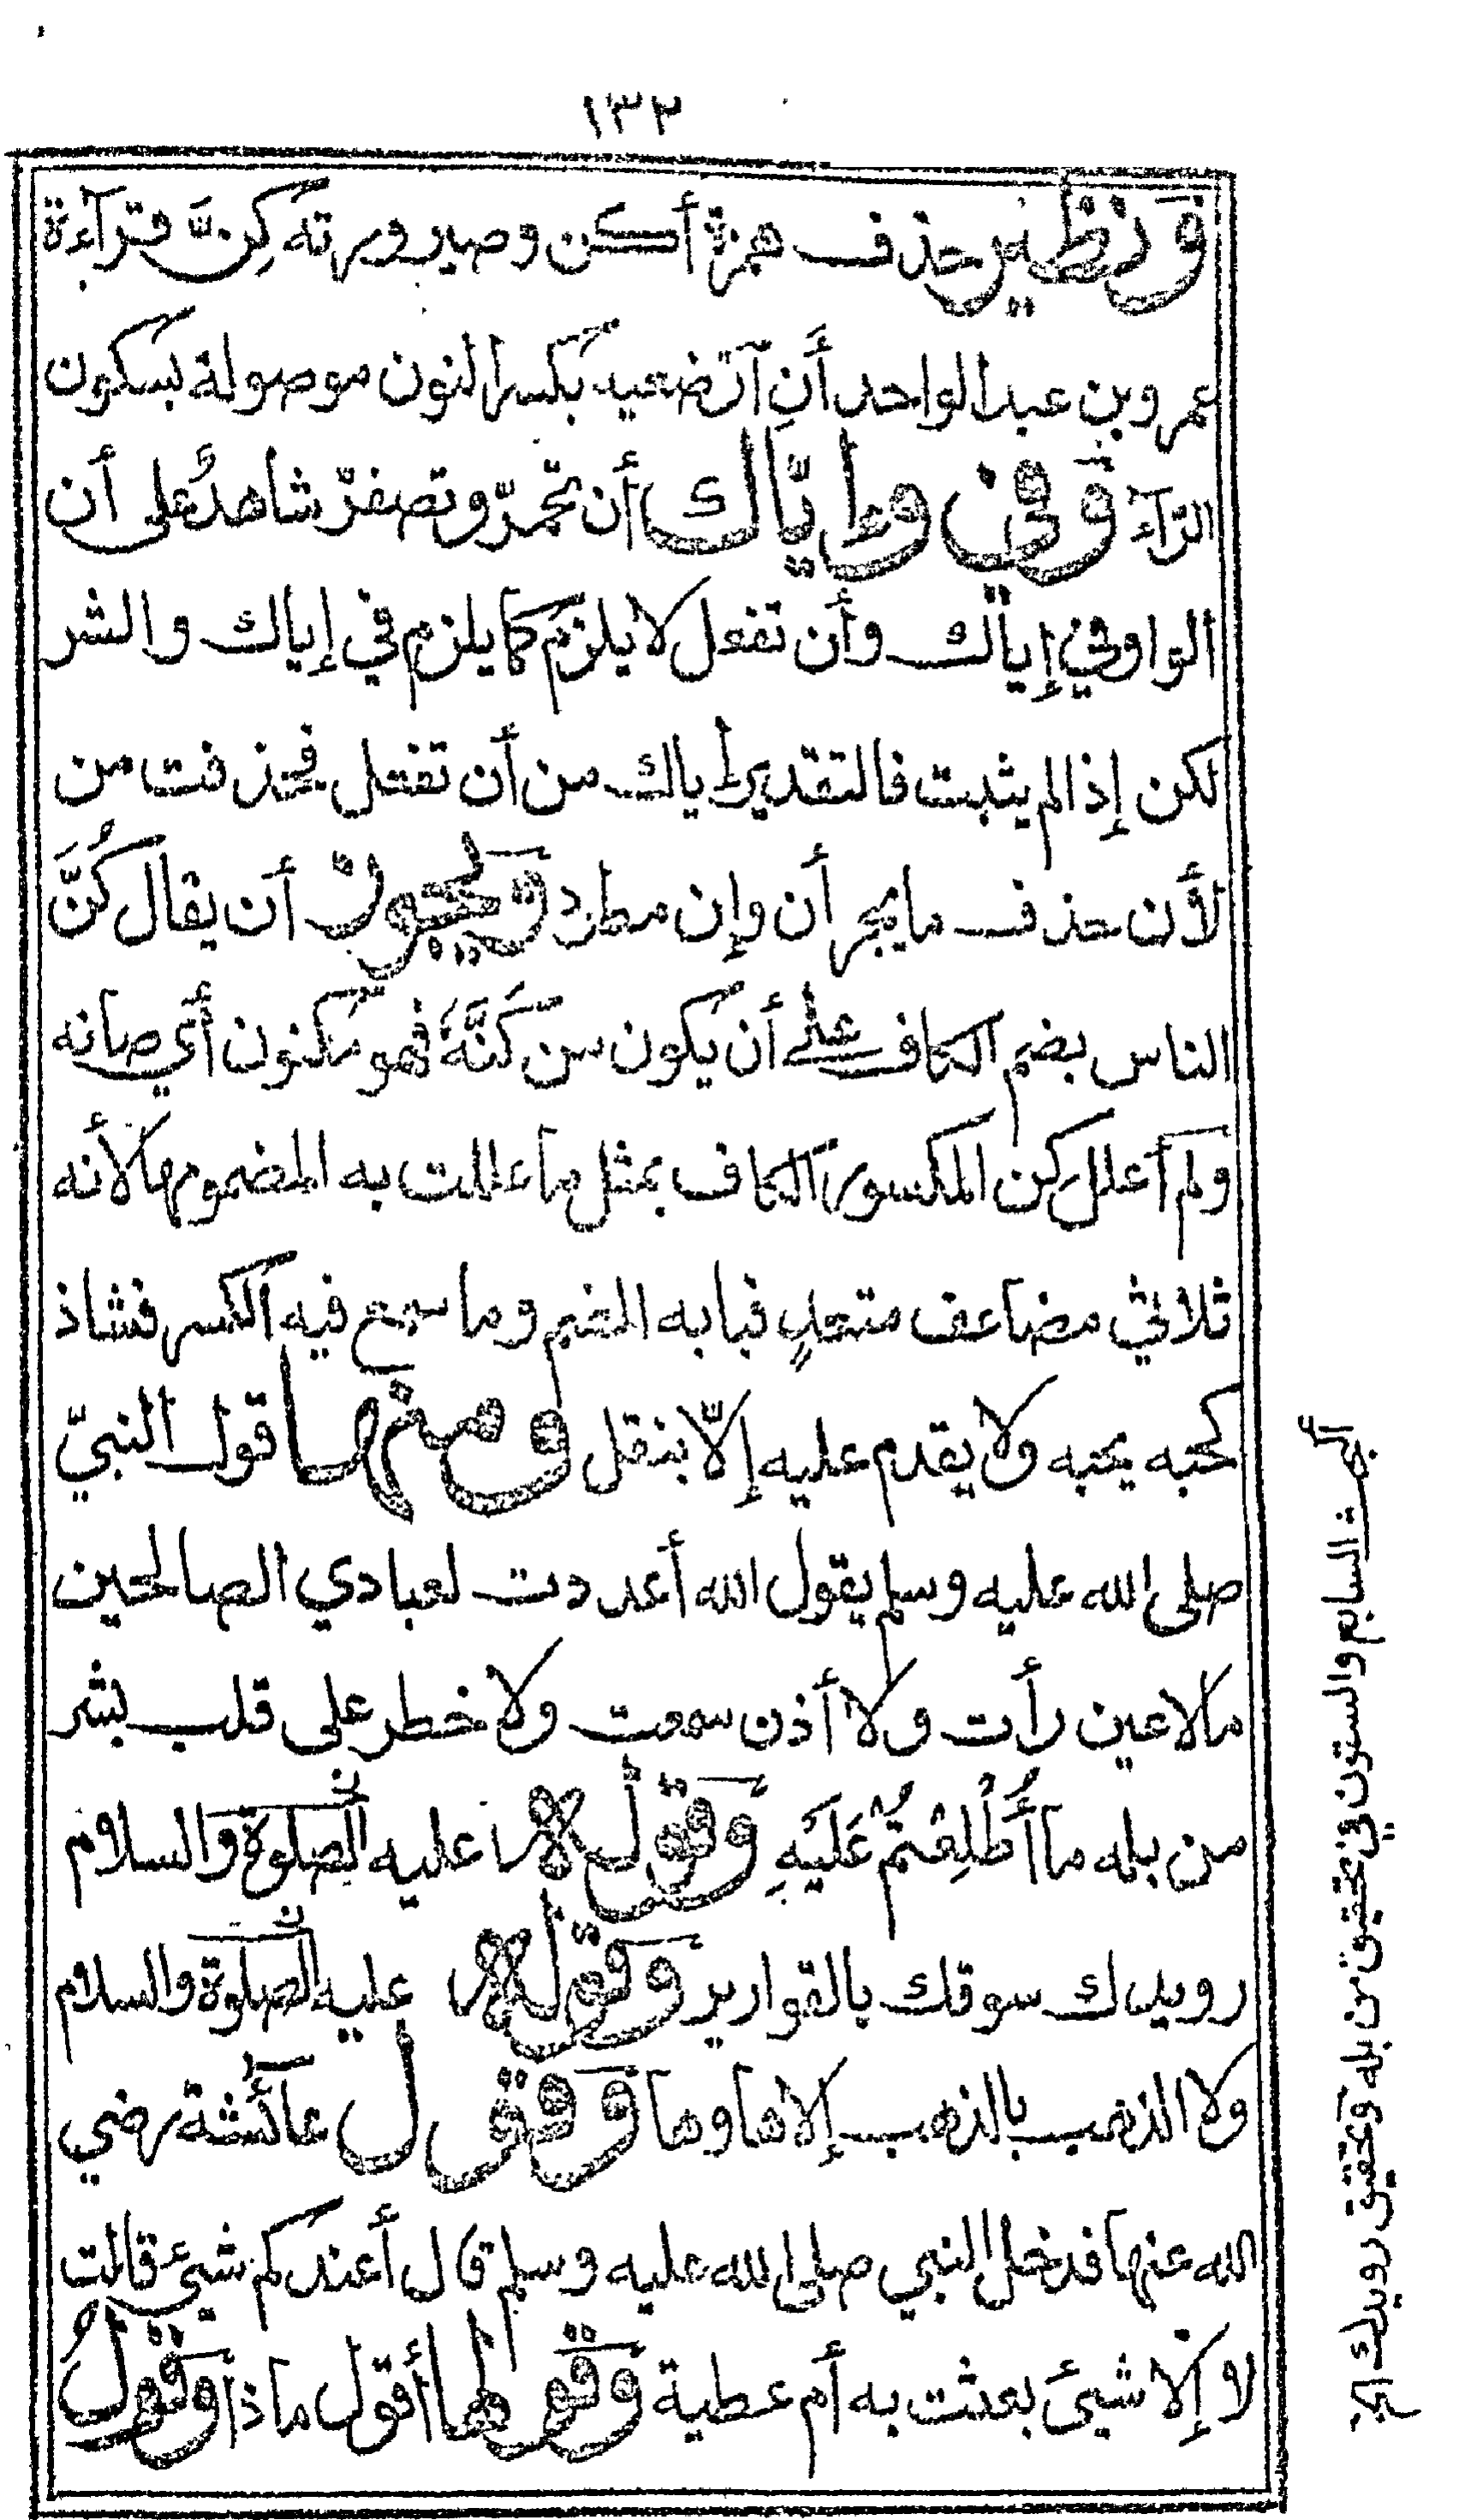 ١٣٢
ونظير حذف همزة أكن وصيرورته كِنَّ قرآءة
عمرو بن عبدالواحد أنِ آرْضعيه بكسرالنون موصولة بسكون
الرّآء وفي وإيّاك أن تحمرّ وتصفرّ شاهدٌ على أن
الواو في إياك وأن تفعل لا يلزم كما يلزم في إياك والشر
لكن إذا لم يثبت فالتقدير إياك من أن تفعل فحذفت من
لأن حذف ما يجر أن وإن مطرد ويجوز أن يقال كُنَّ
الناس بضم الكاف على أن يكون من كَنَّهُ فهو مكنون أي صانه
ولم أعلل كن المكسور الكاف بمثل ما عللت به المضمومها لأنه
ثلاثي مضاعف متعدٍ فبابه الضم وما سمع فيه الكسر فشاذ
كحبه يحبه ولا يقدم عليه إلّا بنقل ومنها قول النبيّ
صلى الله عليه وسلم يقول الله أعددت لعبادي الصالحين
مالا عين رأت ولا أذن سمعت ولا خطر على قلب بشر
من بله ما أُطْلِعْتُمْ عَلَيْهِ وقوله عليه الصلوة والسلام
رويدك سوقك بالقوارير وقوله عليه الصلوة والسلام
ولا الذهب بالذهب إلا ها وها وقول عائشة رضي
الله عنها فدخل النبي صلى الله عليه وسلم قال أعندكم شيئ قالت
لا إلا شيئ بعثت به أم عطية وقولها أقول ماذا وقولُ
أبحث السابع والستون في تحقيق من بله وتحقيق رويدك الخ